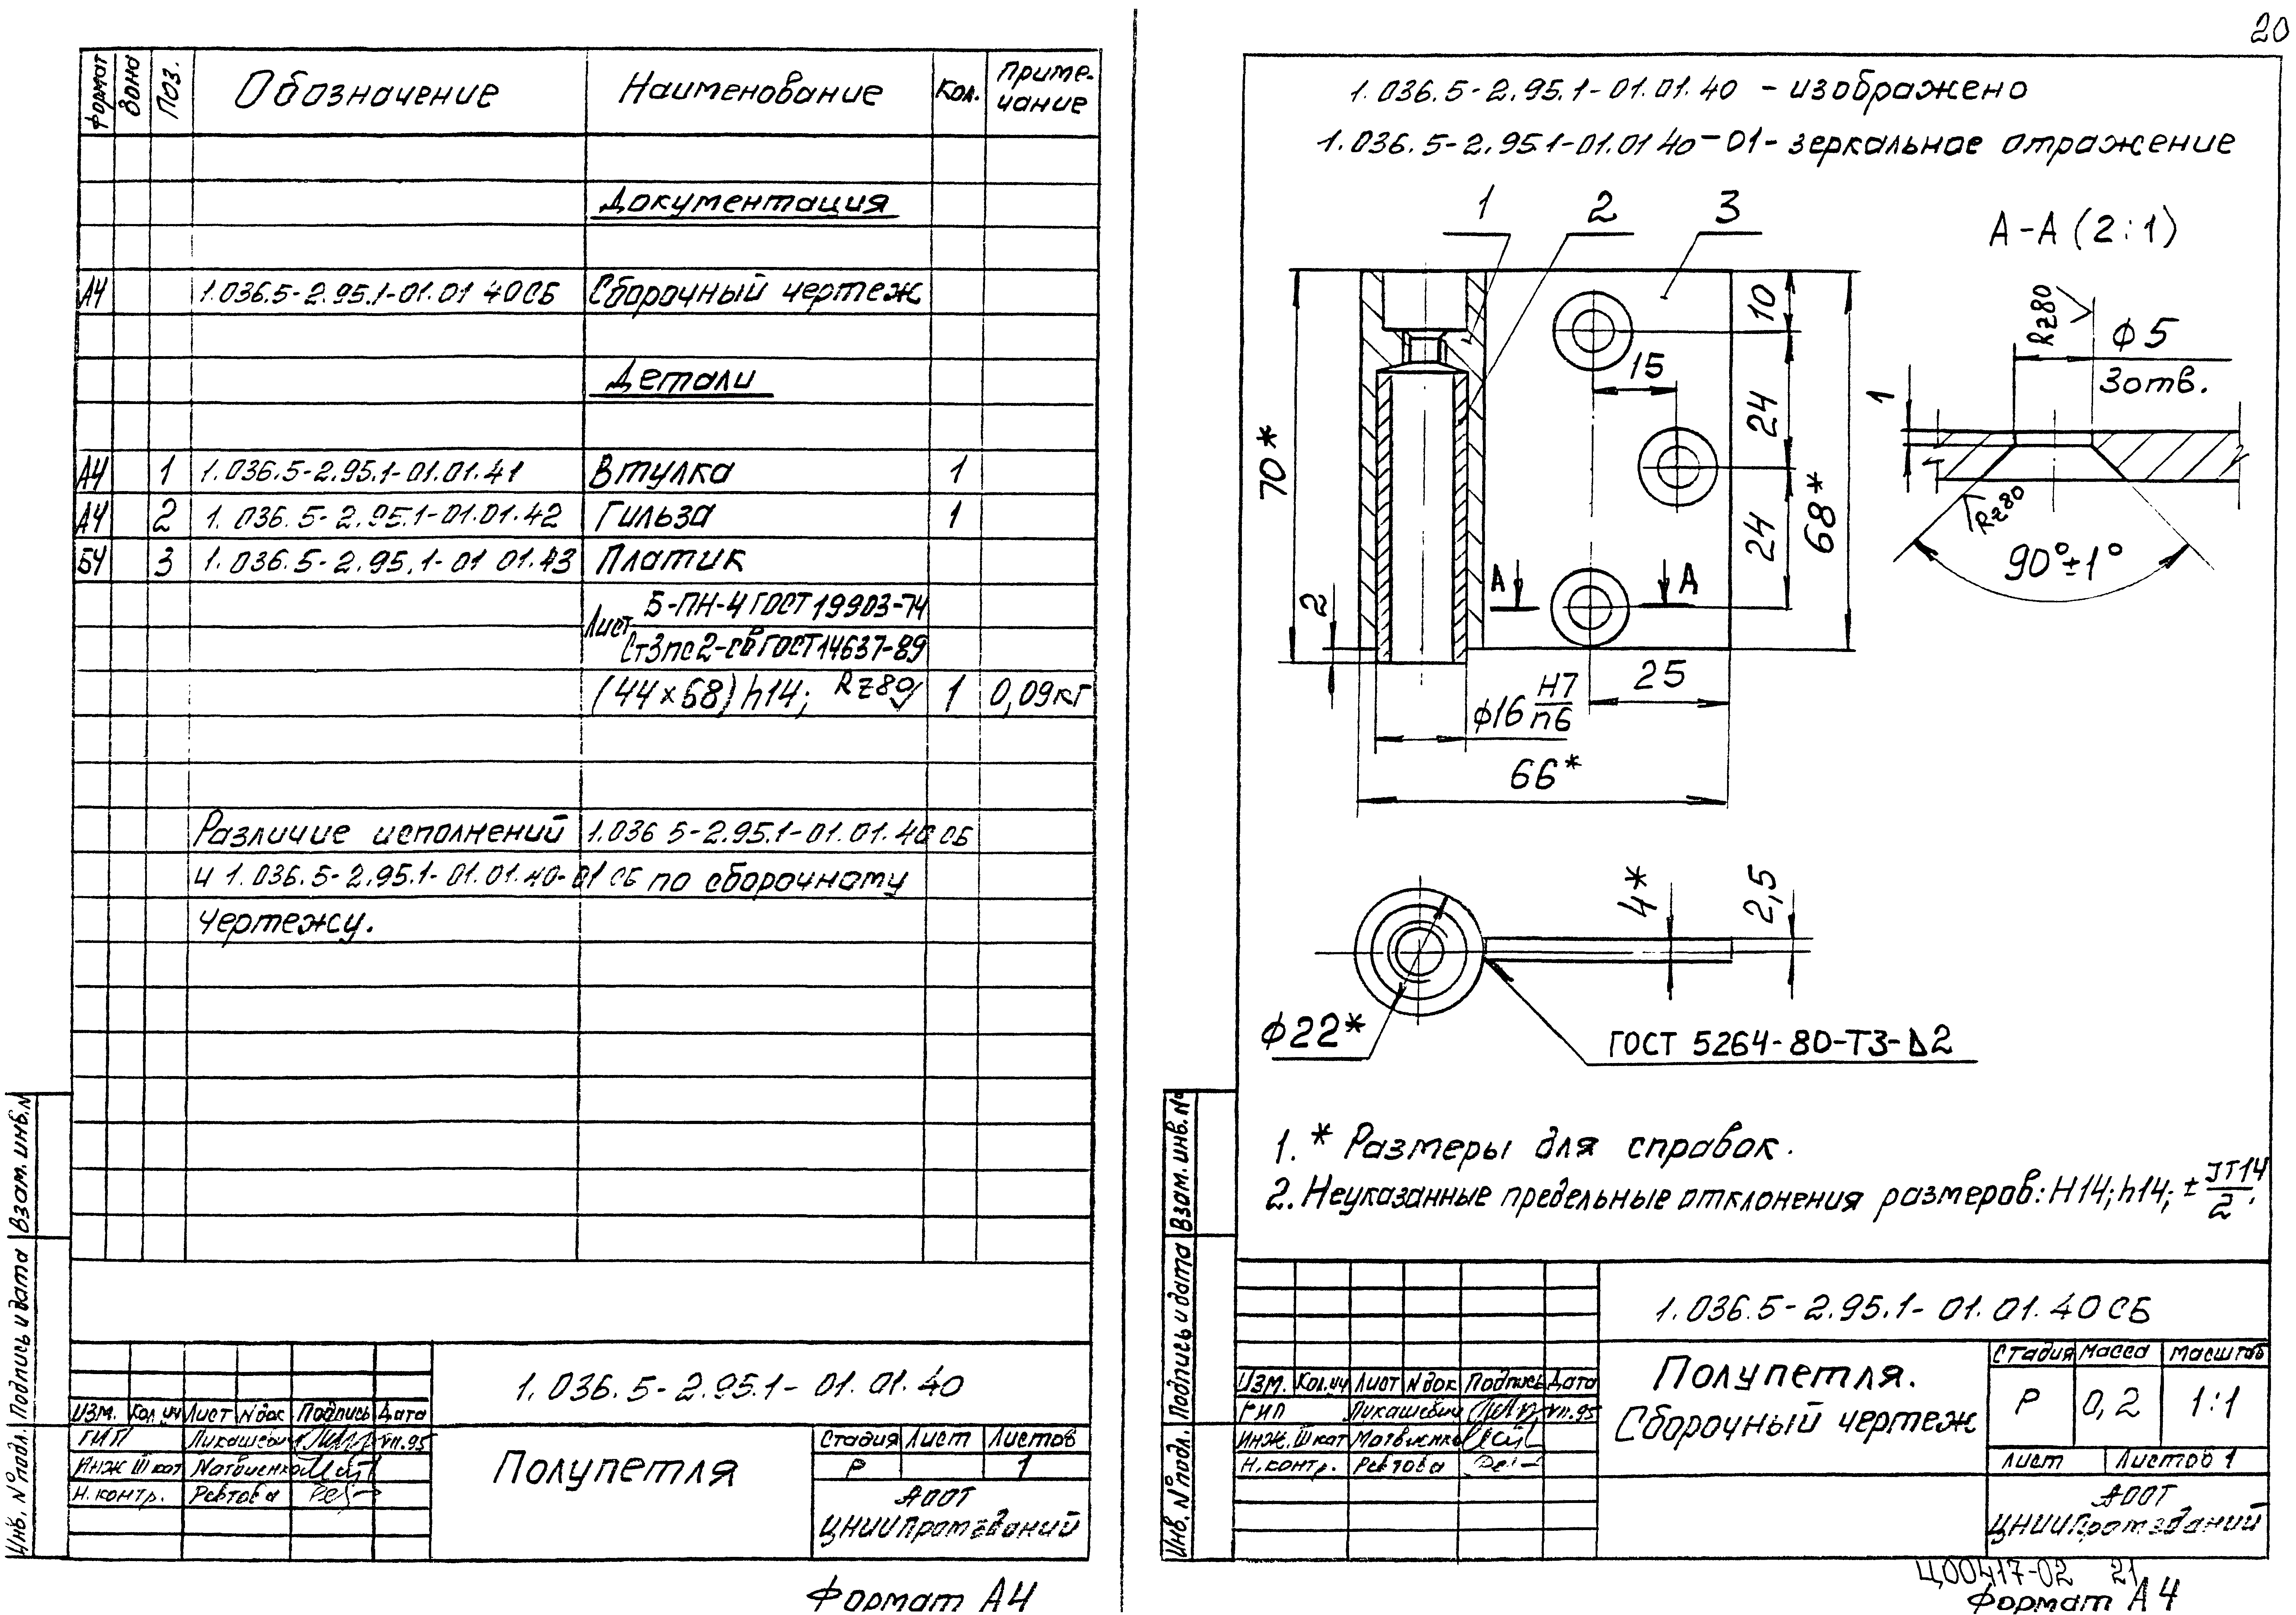 20
Формат
Зона
Поз.
Обозначение
Наименование
Кол.
Приме-
чание
Документация
А4 1.036.5-2.95.1-01.01 40СБ Сборочный чертеж
Детали
А4 1 1.036.5-2.95.1-01.01.41 Втулка 1
А4 2 1.036.5-2.95.1-01.01.42 Гильза 1
БЧ 3 1.036.5-2.95.1-01 01.43 Платик
Лист Б-ПН-4 ГОСТ 19903-74
Ст3пс2-св ГОСТ 14637-89
(44×68) h14; Rz80 1 0,09кг
Различие исполнений 1.036 5-2.95.1-01.01.40 СБ
и 1.036.5-2.95.1-01.01.40-01 СБ по сборочному
чертежу.
Взам. инв. №
Подпись и дата
Инв. № подл.
1.036.5-2.95.1-01.01.40
Изм. Кол.уч Лист № док Подпись Дата
ГИП Лукашевич VII.95
Инж I кат Матвиенко
Н.контр. Ревтова
Полупетля
Стадия Лист Листов
Р 1
АООТ
ЦНИИПромзданий
Формат А4
1.036.5-2.95.1-01.01.40 - изображено
1.036.5-2.95.1-01.01 40-01 - зеркальное отражение
1 2 3
А-А (2:1)
Rz80
ϕ5
3 отв.
1
Rz80
90°±1°
70*
2
10
15
24
24
68*
А А
25
ϕ16 H7/n6
66*
4*
2,5
ϕ22*
ГОСТ 5264-80-Т3-△2
1. * Размеры для справок.
2. Неуказанные предельные отклонения размеров: H14; h14; ± IT14/2.
Взам. инв. №
Подпись и дата
Инв. № подл.
1.036.5-2.95.1-01.01.40СБ
Изм. Кол.уч Лист № док Подпись Дата
ГИП Лукашевич VII.95
Инж. I кат Матвиенко
Н.контр. Ревтова
Полупетля.
Сборочный чертеж
Стадия Масса Масштаб
Р 0,2 1:1
Лист Листов 1
АООТ
ЦНИИПромзданий
Ц00417-02 21
Формат А4